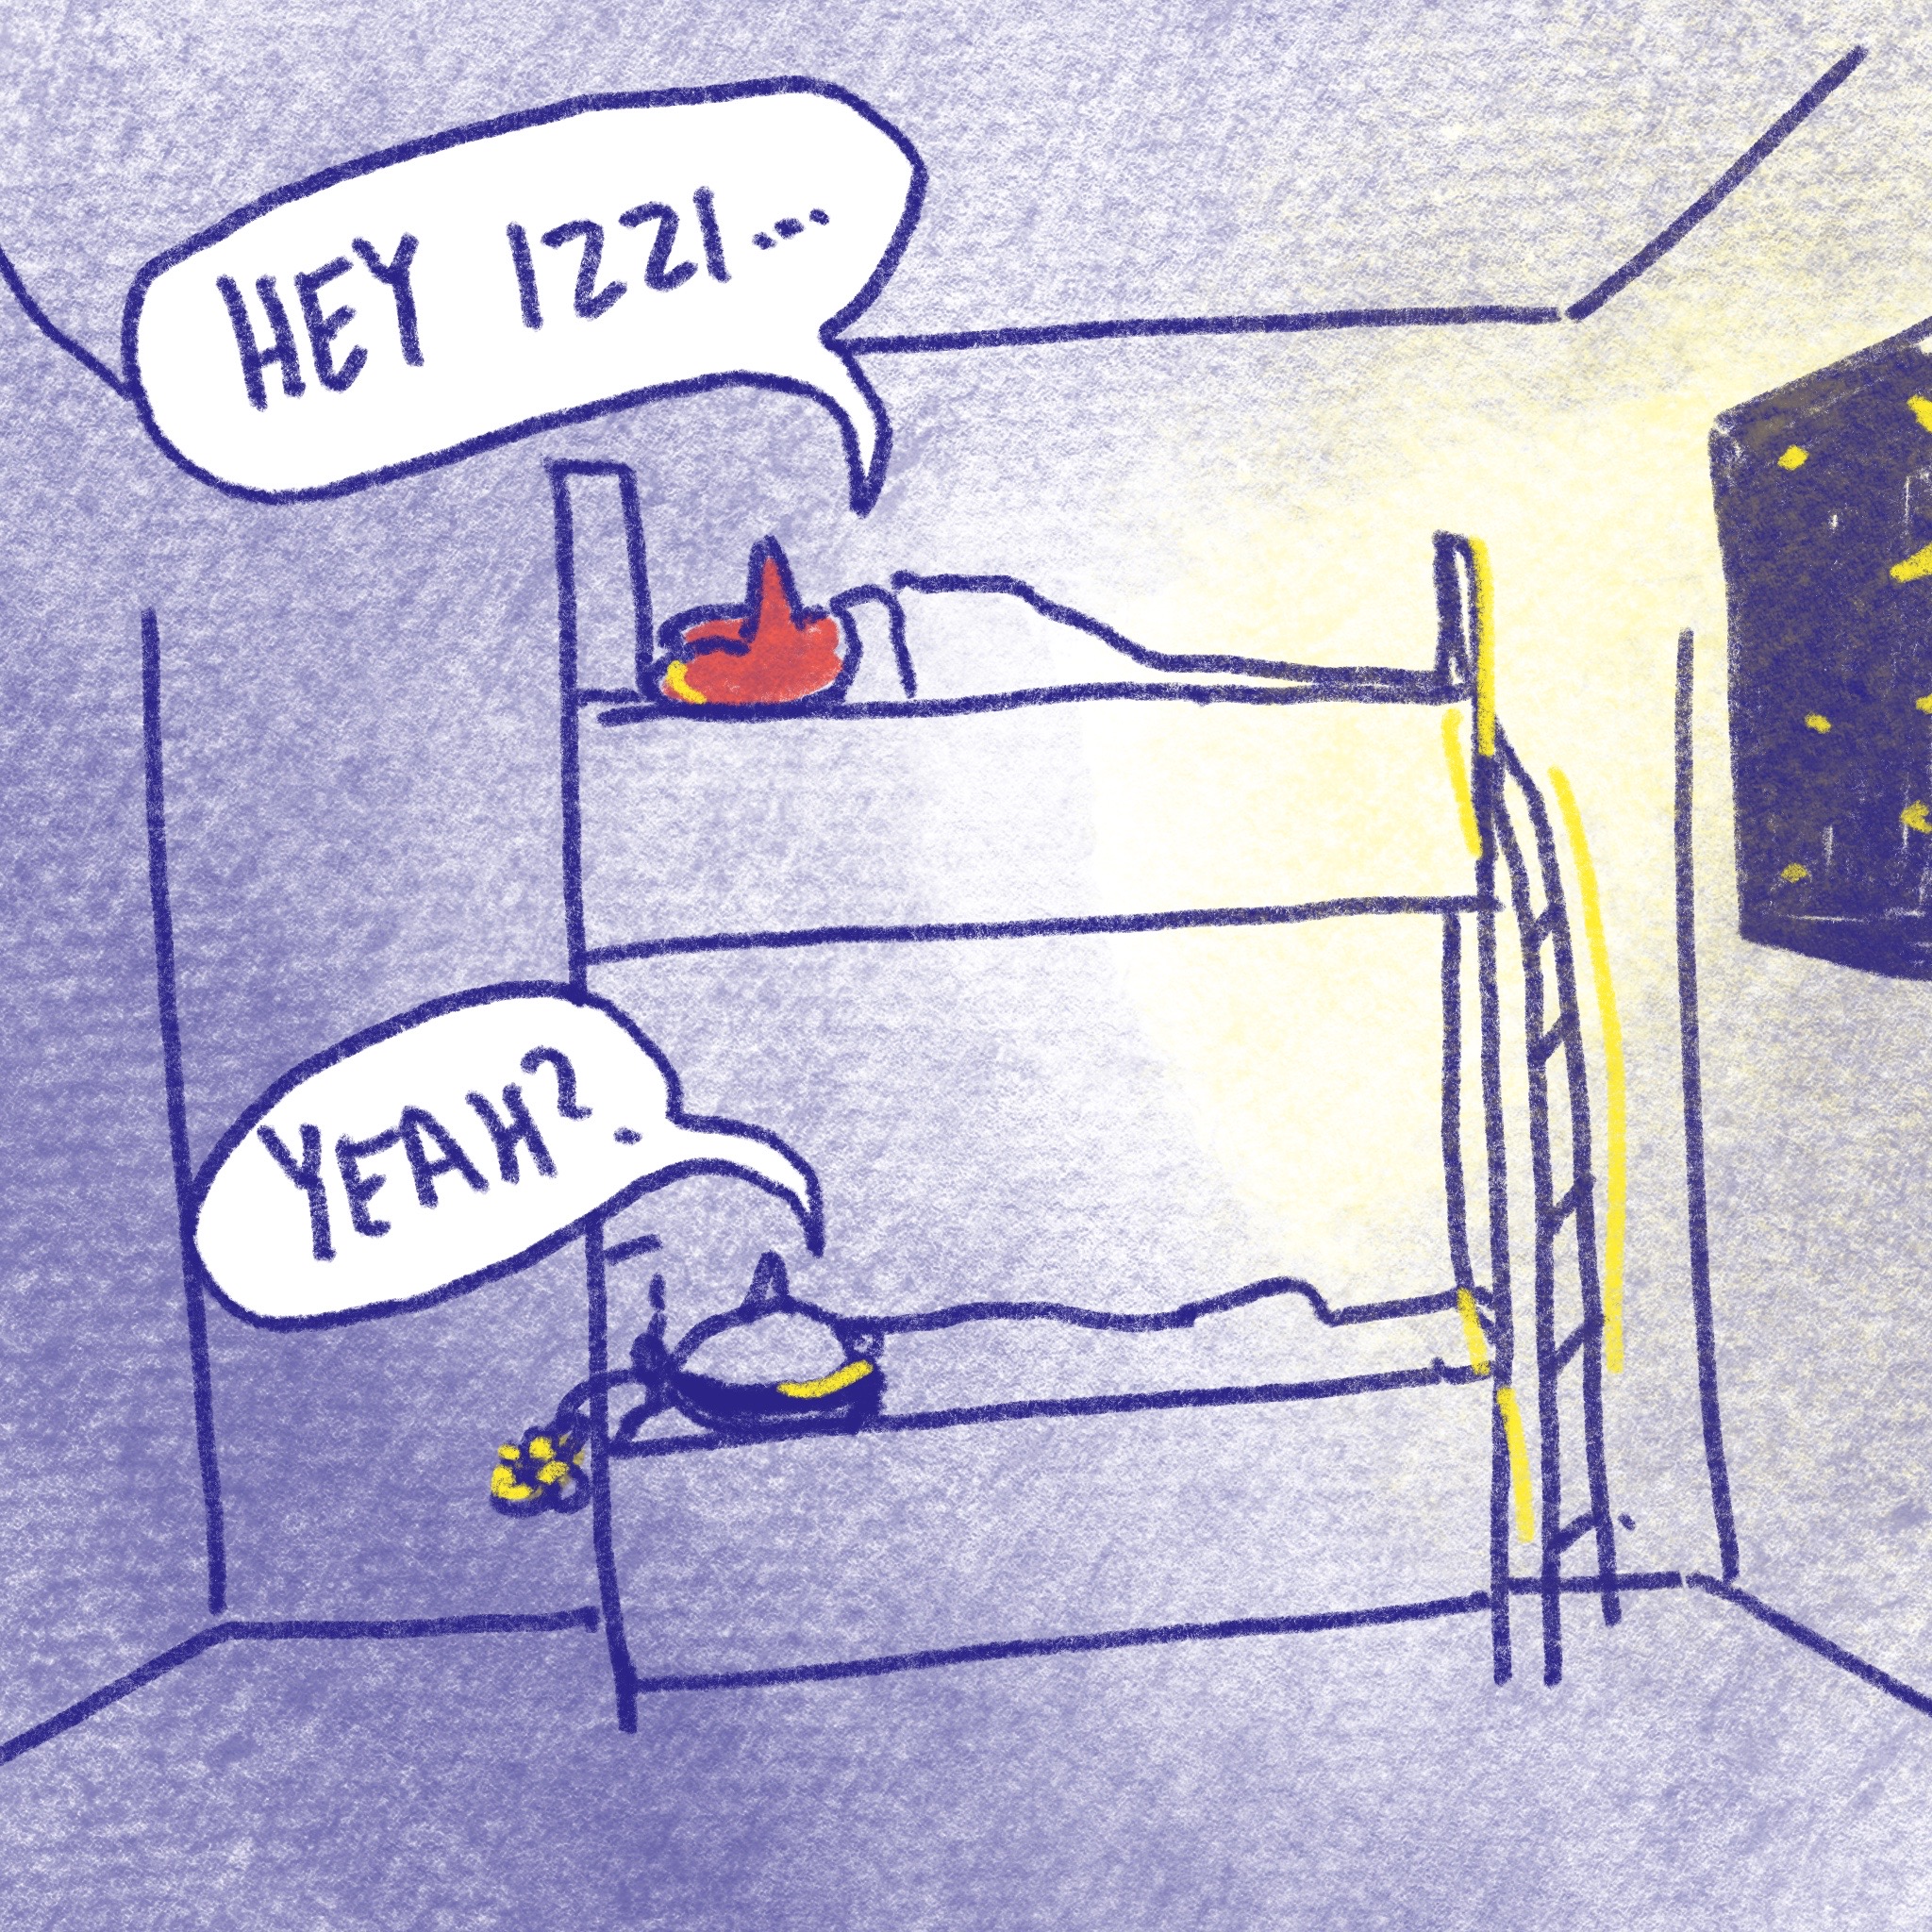 HEY IZZI...
YEAH?